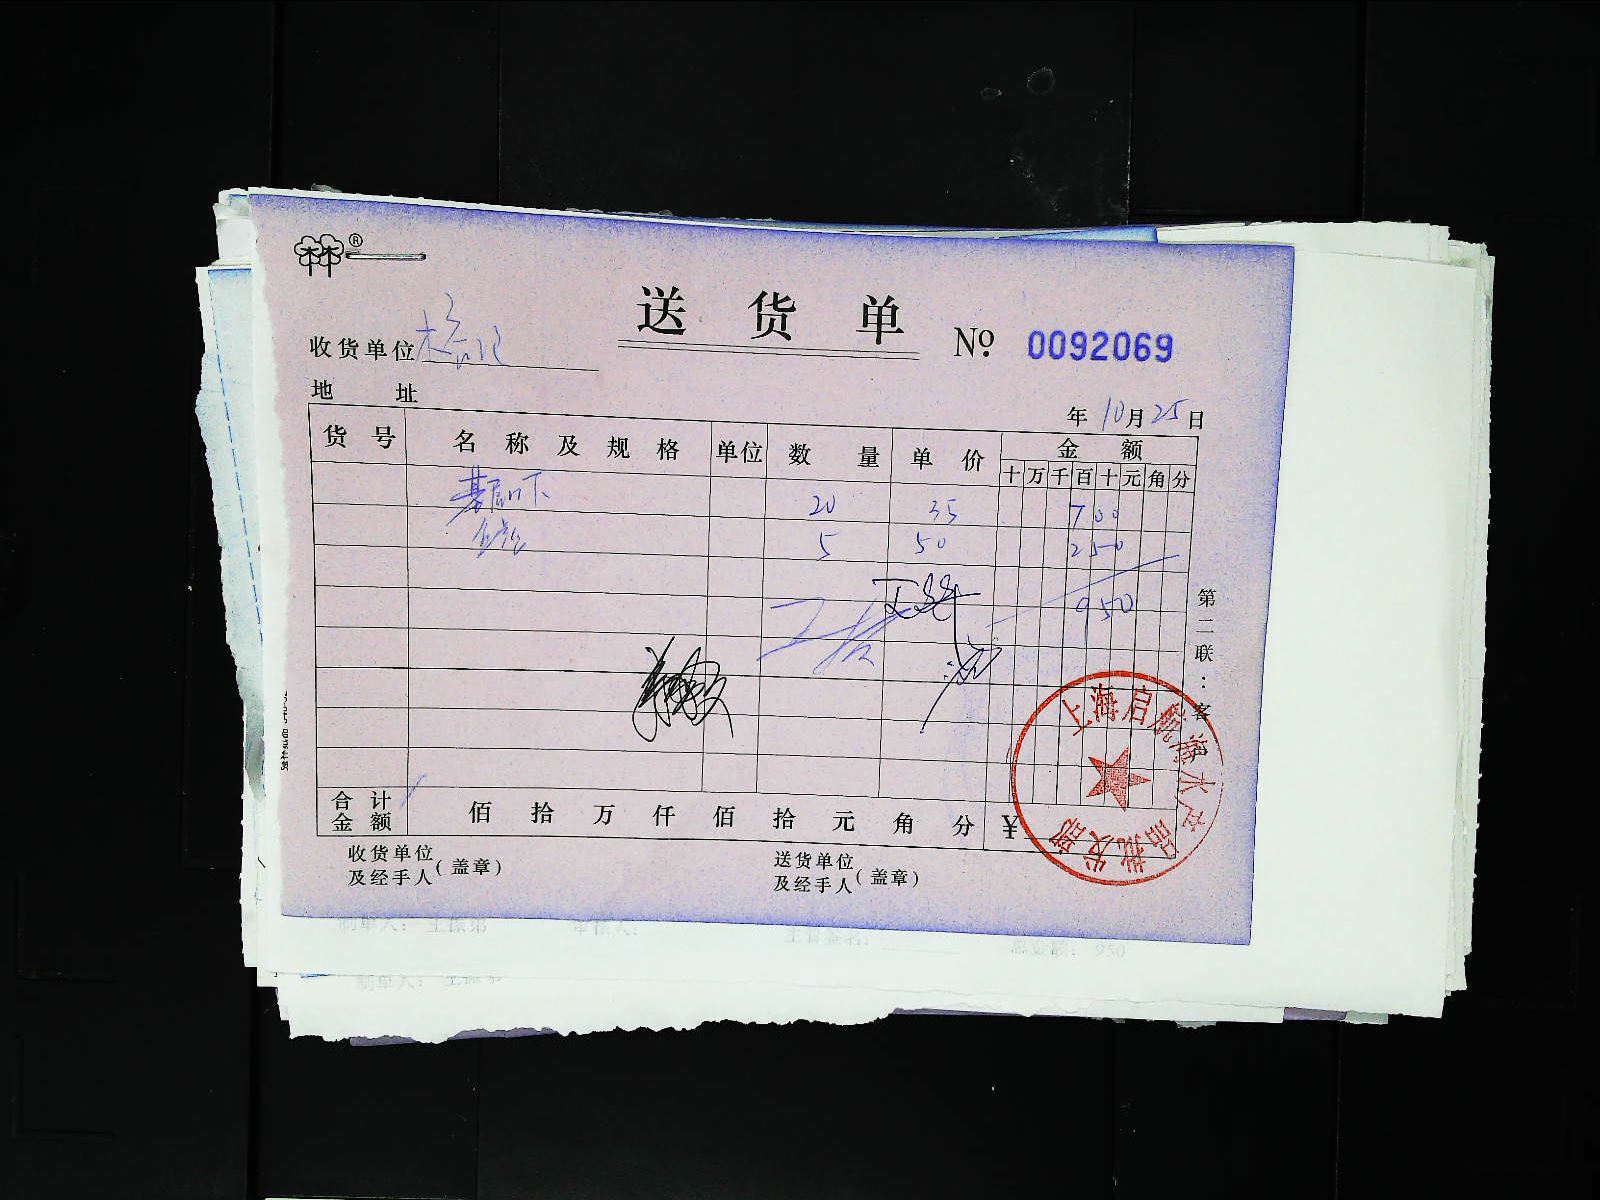 林林®
送货单 № 0092069
收货单位
地址
年 10月25日
货号 名称及规格 单位 数量 单价 金额
十 万 千 百 十 元 角 分
基围下 20 35 700
5 50 250
950
第二联：客户
上海启航海水产品批发部
合计金额 佰 拾 万 仟 佰 拾 元 角 分 ¥
收货单位及经手人(盖章) 送货单位及经手人(盖章)
总金额: 950